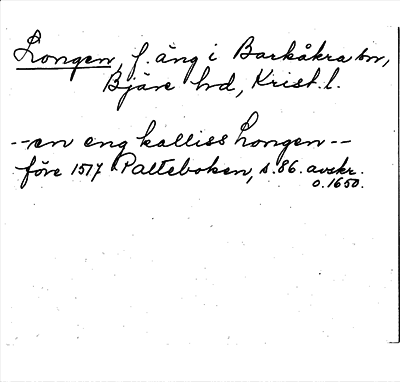 Longen, f. äng i Barkåkra sn,
Bjäre hd, Krist. l.
--en eng kalliss Longen--
före 1517 Palteboken, s. 86. avskr.
o. 1650.